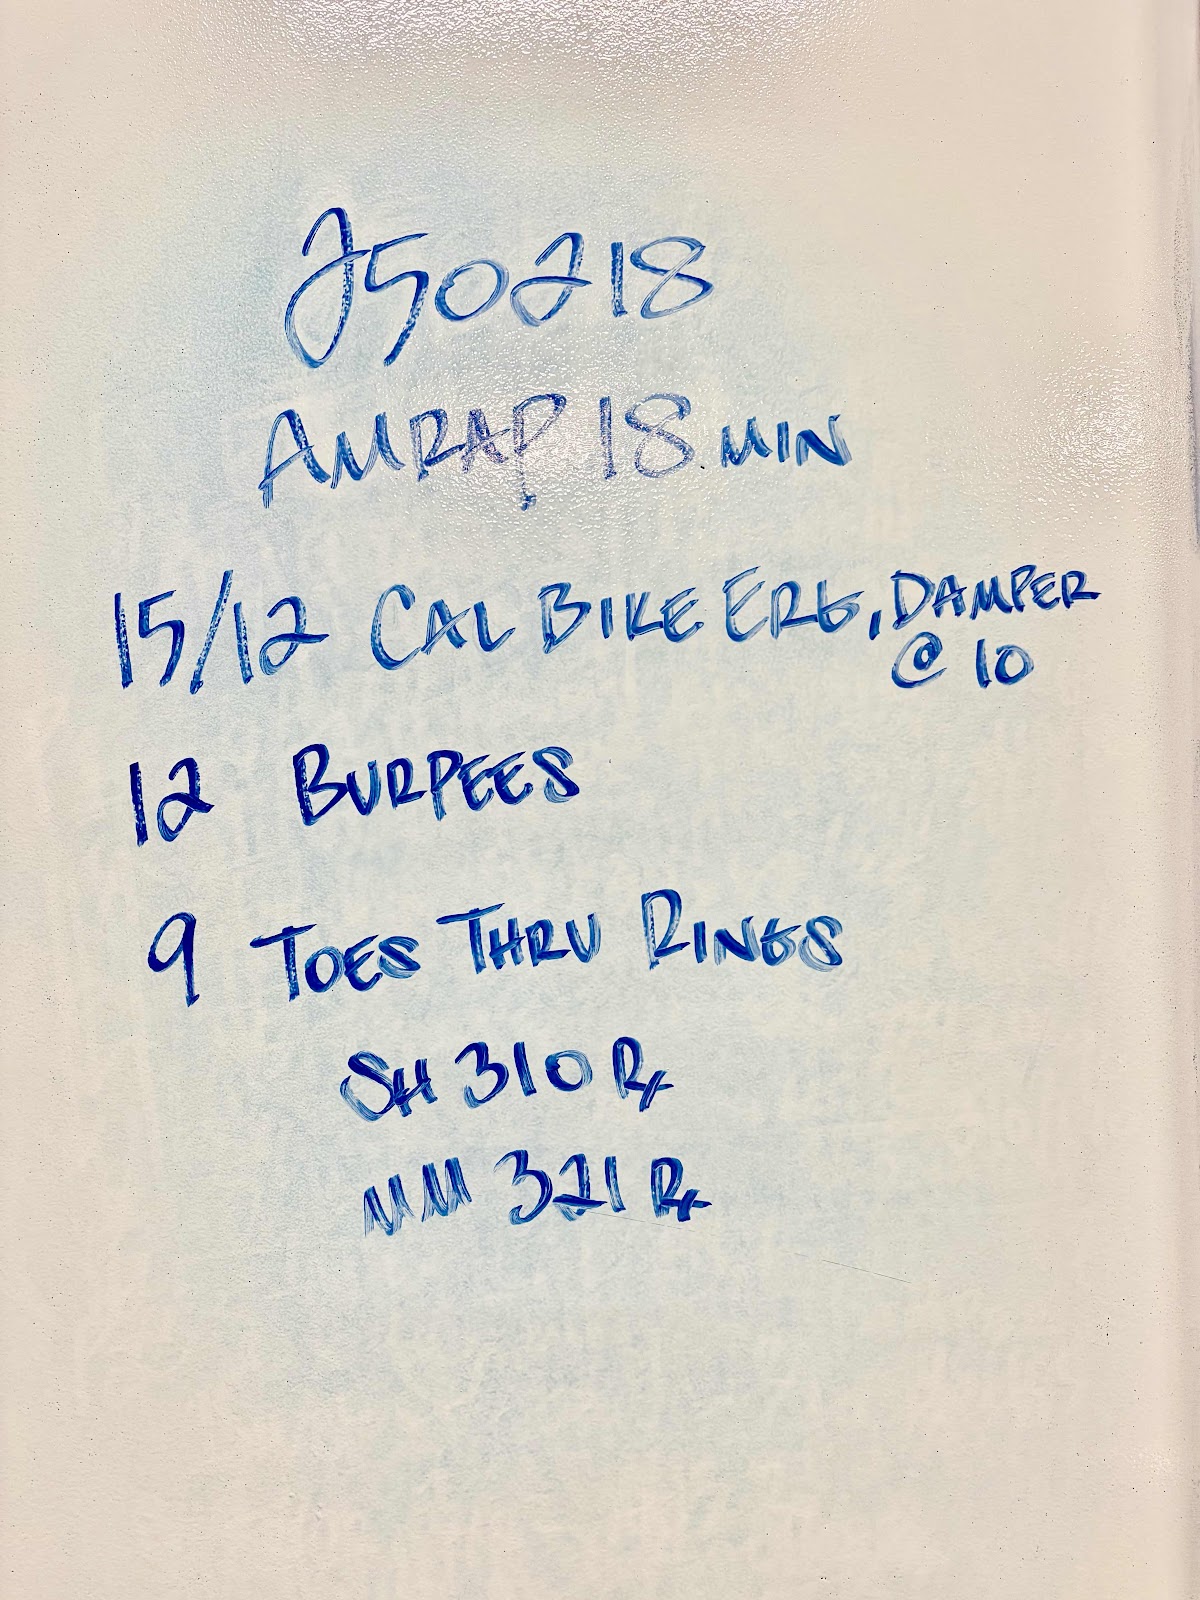 250218
AMRAP 18 MIN
15/12 CAL BIKE ERG, DAMPER
@ 10
12 BURPEES
9 TOES THRU RINGS
SH 310 Rx
MM 321 Rx